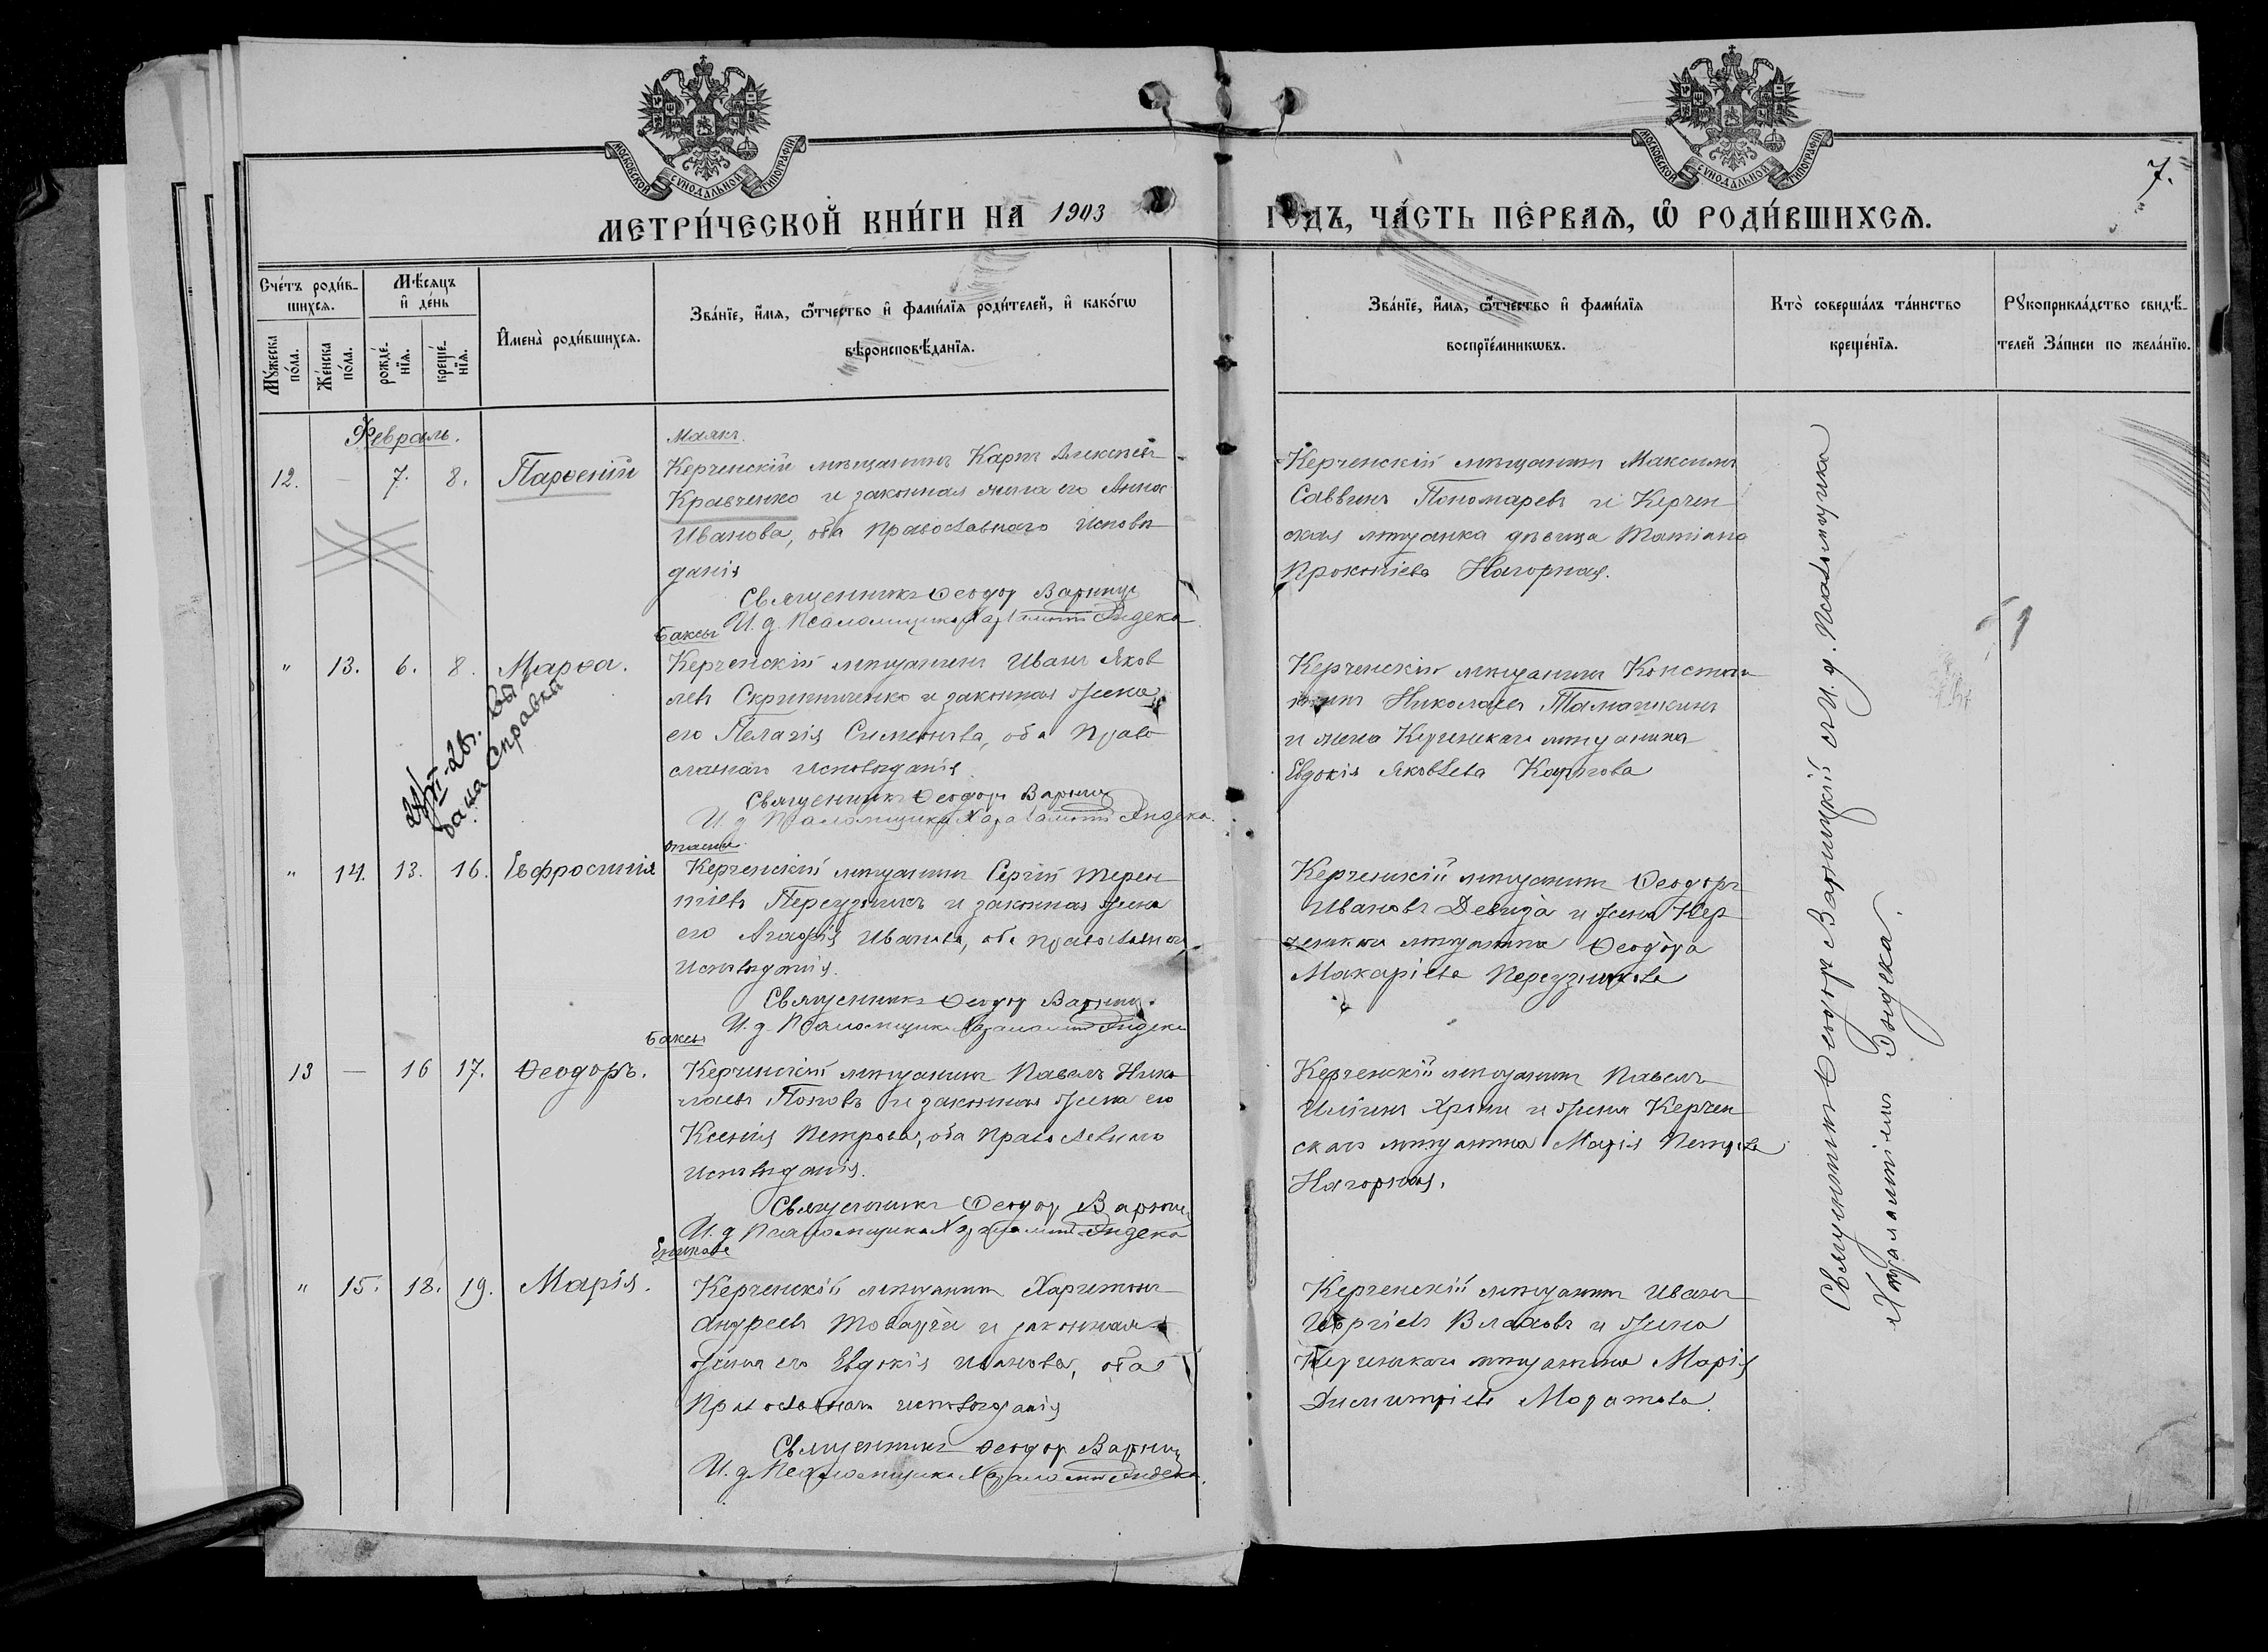 МОСКОВСКОЙ СѴНОДАЛЬНОЙ ТИПОГРАФІИ
МОСКОВСКОЙ СѴНОДАЛЬНОЙ ТИПОГРАФІИ
7.
МЕТРИ́ЧЕСКОЙ КНИ́ГИ НА 1903 ГОДЪ, ЧА́СТЬ ПЕ́РВАѦ, Ѽ РОДИ́ВШИХСѦ.
Сче́тъ роди́в-
шихсѧ.
Мꙋ́жеска по́ла.
Же́нска по́ла.
Мѣ́сѧцъ
и҆ де́нь
рожде́-
нїѧ.
креще́-
нїѧ.
И҆мена̀ роди́вшихсѧ.
Зва́нїе, и҆́мѧ, ѻ҆́тчество и҆ фами́лїѧ роди́телей, и҆ како́гѡ
вѣроисповѣ́данїѧ.
Зва́нїе, и҆́мѧ, ѻ҆́тчество и҆ фами́лїѧ
воспрїе́мникѡвъ.
Кто̀ соверша́лъ та́инство
креще́нїѧ.
Рꙋкоприкла́дство свидѣ́-
телей За́писи по жела́нїю.
Февраль.
Маякъ.
12. — 7. 8. Парѳеній
Керченскій мѣщанинъ Карпъ Алексѣевъ
Кравченко и законная жена его Анна
Иванова, оба Православнаго Исповѣ
данія
Священникъ Ѳеодор Варниц
И. д. Псаломщика Харалампій Яндека
Керченскій мѣщанинъ Максимъ
Саввинъ Пономаревъ и Керчен
ская мѣщанка дѣвица Татіана
Прокопіева Нагорная.
Баксы
" 13. 6. 8. Марѳа.
Керченскій мѣщанинъ Иванъ Яков
левъ Скрипниченко и законная жена
его Пелагія Симеонова, оба Право
славнаго Исповѣданія
Священникъ Ѳеодоръ Варниц
И. д. Псаломщика Харалампій Яндека.
дана справка
Керченскій мѣщанинъ Конста
тинъ Николаевъ Тамашкинъ
и жена Керченскаго мѣщанина
Евдокія Яковлева Карпова
" 14. 13. 16. Евфросинія
Керченскій мѣщанинъ Сергій Терен
тіевъ Переузникъ и законная жена
его Агафія Иванова, оба православнаго
Исповѣданія.
Священникъ Ѳеодор Варниц
И. д. Псаломщика Харалампій Яндека
Керченскій мѣщанинъ Ѳеодоръ
Ивановъ Девида и жена Кер
ченскаго мѣщанина Ѳеодора
Макаріева Переузникова
Баксы
13 — 16 17. Ѳеодоръ.
Керченскій мѣщанинъ Павелъ Нико
лаевъ Поповъ и законная жена его
Ксенія Петрова, оба Православнаго
Исповѣданія.
Священникъ Ѳеодор Варниц
И. д. Псаломщика Харалампій Яндека
Керченскій мѣщанинъ Павелъ
и жена Керчен
скаго мѣщанина Марія Петрова
Нагорная.
Еникале
" 15. 18. 19. Марія.
Керченскій мѣщанинъ Харитонъ
Андреевъ и законная
жена его Евдокія Иванова, оба
Православнаго исповѣданія
Священникъ Ѳеодор Варниц
И. д. Псаломщика Харалампій Яндека.
Керченскій мѣщанинъ Иванъ
Георгіевъ Влаховъ и жена
Керченскаго мѣщанина Марія
Димитріева Моратова.
Священникъ Ѳеодоръ Варницкій и И. д. Псаломщика
Харалампій Яндека.